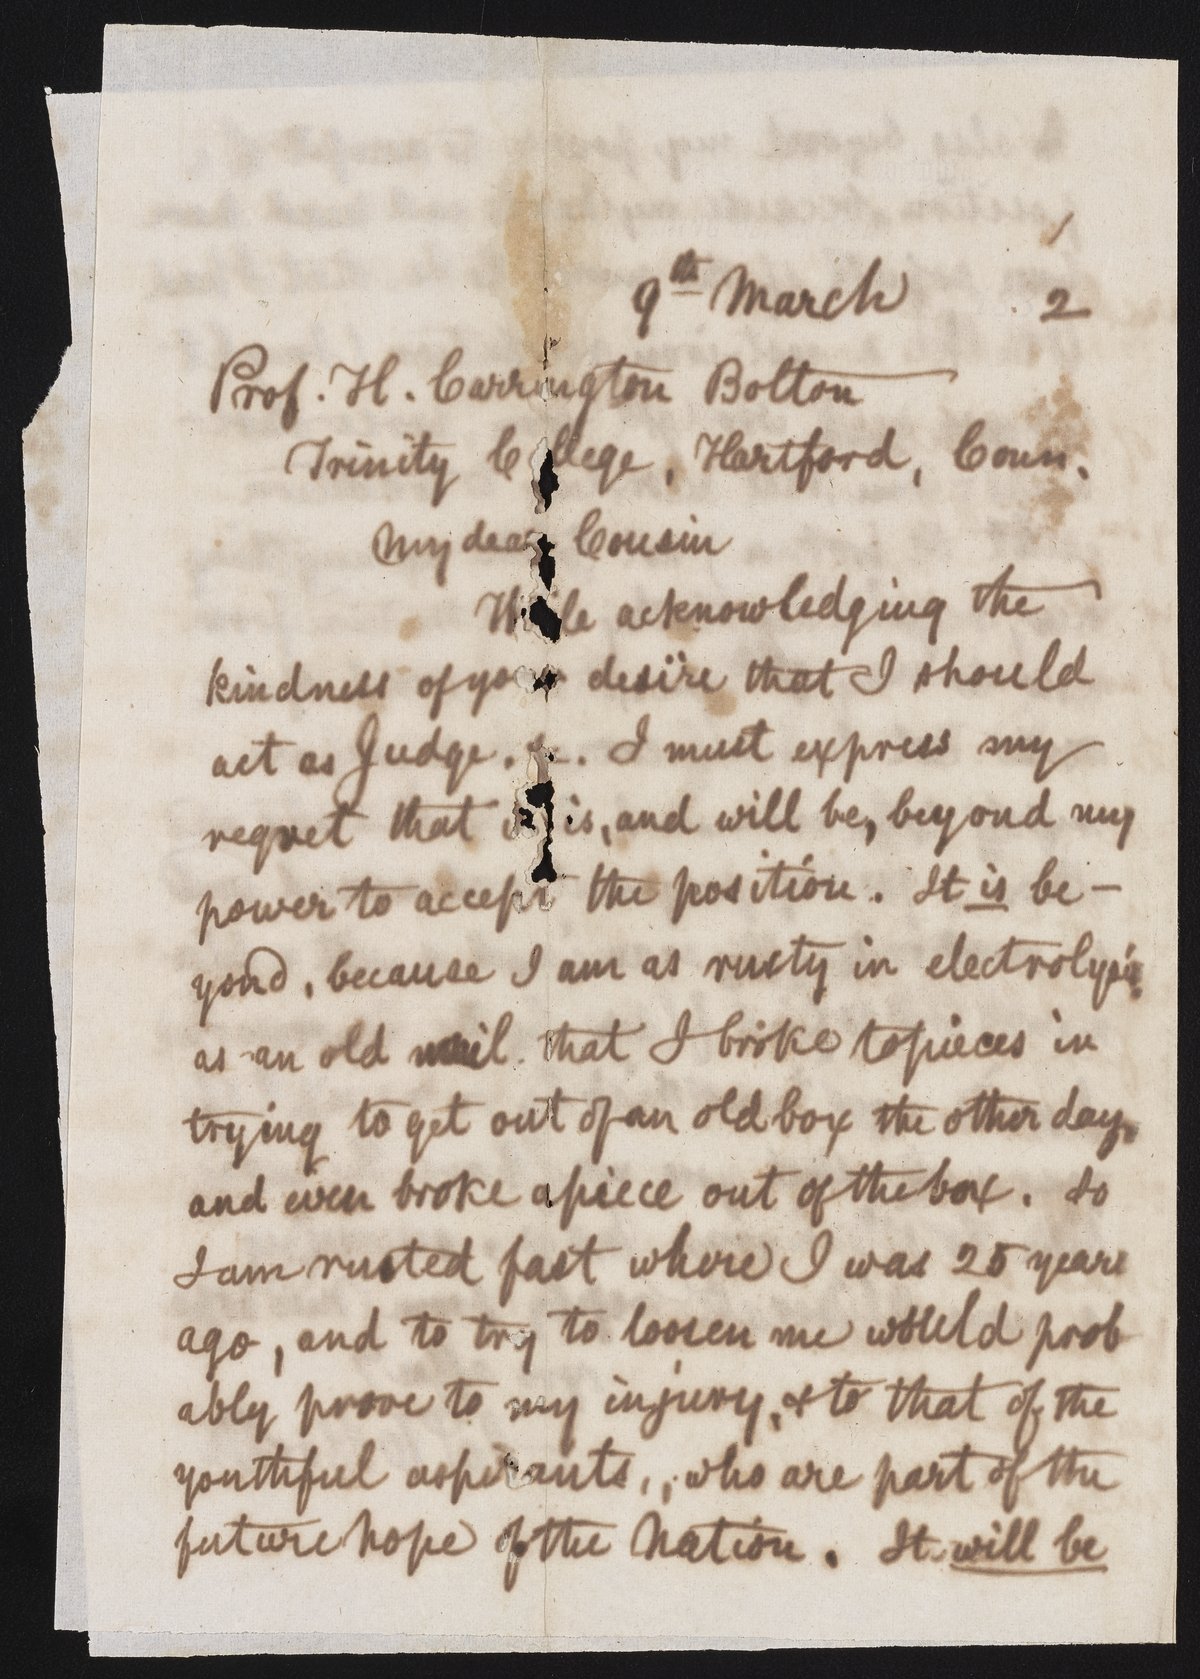 9th March 2
Prof. H. Carrington Bolton
Trinity C llege, Hartford, Conn.
My dear Cousin
Wh le acknowledging the
kindness of your desire that I should
act as Judge. &c. I must express my
regret that it is, and will be, beyond my
power to accept the position. It is be-
yond, because I am as rusty in electrolysis
as an old nail. that I broke to pieces in
trying to get out of an old box the other day,
and even broke a piece out of the box. So
I am rusted fast where I was 25 years
ago, and to try to loosen me would prob
ably prove to my injury, & to that of the
youthful aspirants, who are part of the
future hope of the Nation. It will be